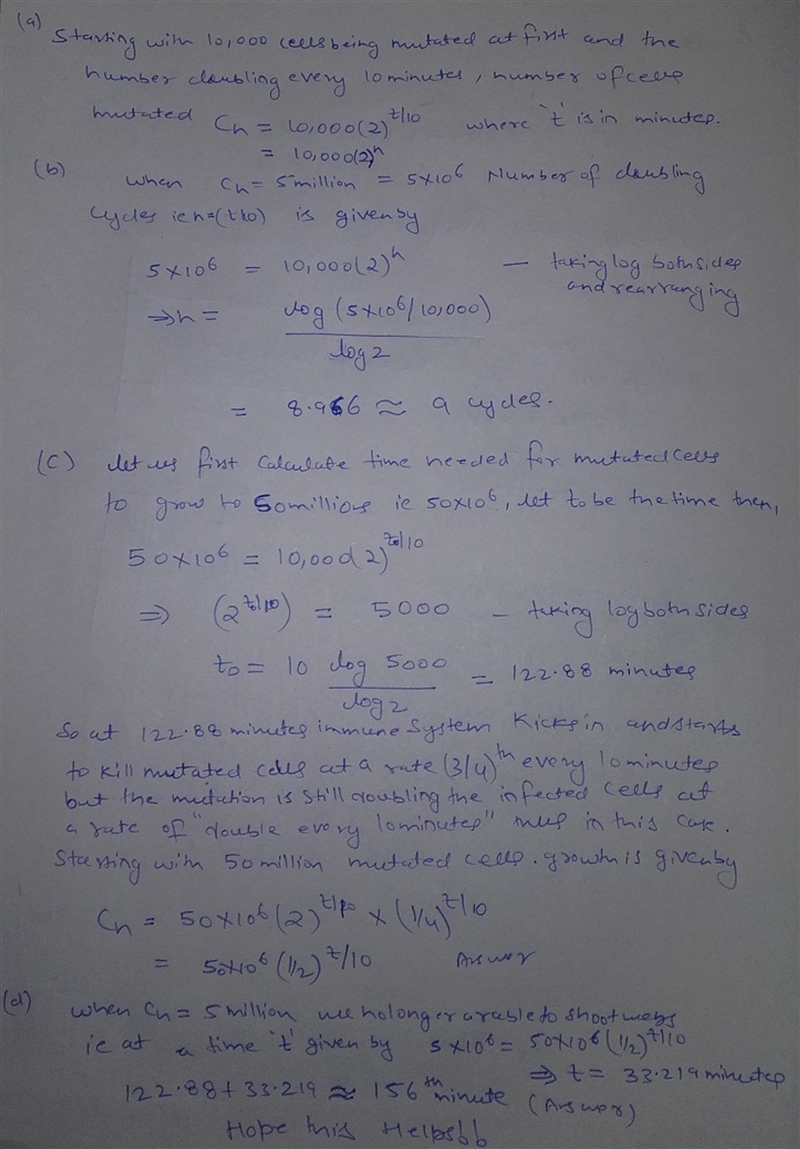 (a)
Starting with 10,000 cells being mutated at first and the
number doubling every 10 minutes, number of cells
mutated Cn = 10,000(2)^t/10 where 't' is in minutes.
= 10,000(2)^n
(b)
when Cn = 5 million = 5×10^6 Number of doubling
cycles ie n=(t/10) is given by
5×10^6 = 10,000(2)^n — taking log both sides
and rearranging
⇒ n = log (5×10^6/10,000)
log 2
= 8.966 ≈ 9 cycles.
(C) let us first calculate time needed for mutated cells
to grow to 50 millions ie 50×10^6, let to be the time then,
50×10^6 = 10,000(2)^to/10
⇒ (2^to/10) = 5000 – taking log both sides
to = 10 log 5000 = 122.88 minutes
log 2
So at 122.88 minutes immune system kicks in and starts
to kill mutated cells at a rate (3/4)^th every 10 minutes
but the mutation is still doubling the infected cells at
a rate of "double every 10 minutes" thus in this case.
Starting with 50 million mutated cells. growth is given by
Cn = 50×10^6 (2)^t/10 × (1/4)^t/10
= 50×10^6 (1/2)^t/10 Answer
(d)
when Cn = 5 million we no longer are able to shoot webs
ie at a time 't' given by 5×10^6 = 50×10^6 (1/2)^t/10
⇒ t = 33.219 minutes
122.88 + 33.219 ≈ 156^th minute (Answer)
Hope this Helps!!